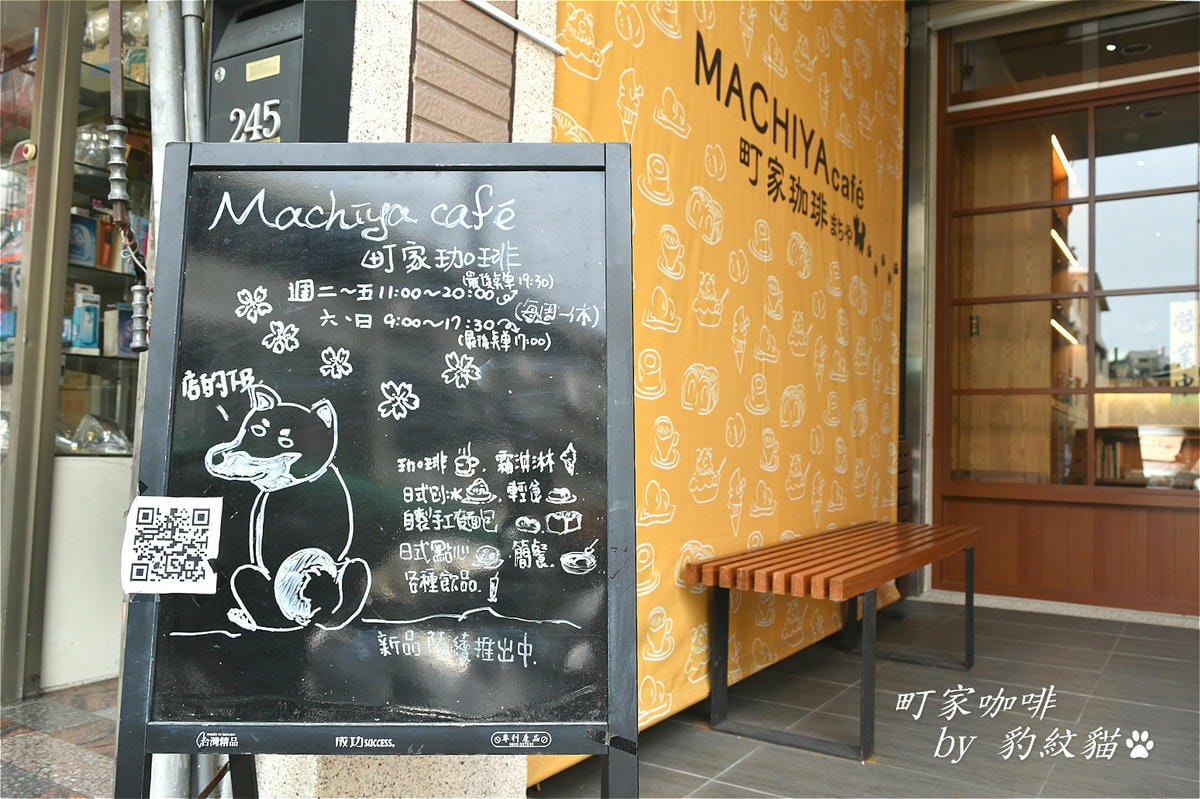 245
MACHIYA café
町家珈琲 まちや
Machiya café
町家珈琲
(最後點單19:30)
週二～五 11:00～20:00
(每週一休)
六、日 9:00～17:30～
(最後點單17:00)
店的
珈琲 . 霜淇淋
日式刨冰 . 輕食
自製手工麵包
日式點心 . 簡餐
各種飲品
新品陸續推出中.
台灣精品
成功 SUCCESS.
專利產品
町家咖啡
by 豹紋貓